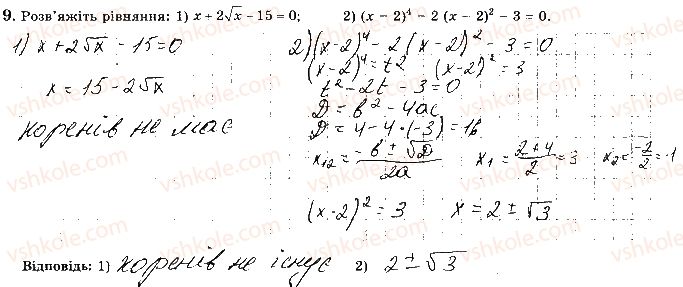 9. Розв'яжіть рівняння: 1) x + 2√x – 15 = 0; 2) (x – 2)⁴ – 2 (x – 2)² – 3 = 0.
1) x + 2√x - 15 = 0
x = 15 - 2√x
коренів не має
2) (x-2)⁴ - 2(x-2)² - 3 = 0
(x-2)⁴ = t2 (x-2)² = 3
t² - 2t - 3 = 0
D = в² - 4ac
D = 4 - 4·(-3) = 16
x12 = -в ± √D / 2a x1 = 2+4 / 2 = 3 x2 = -2 / 2 = -1
(x-2)² = 3 x = 2 ± √3
Відповідь: 1) коренів не існує 2) 2 ± √3
vshkole.com